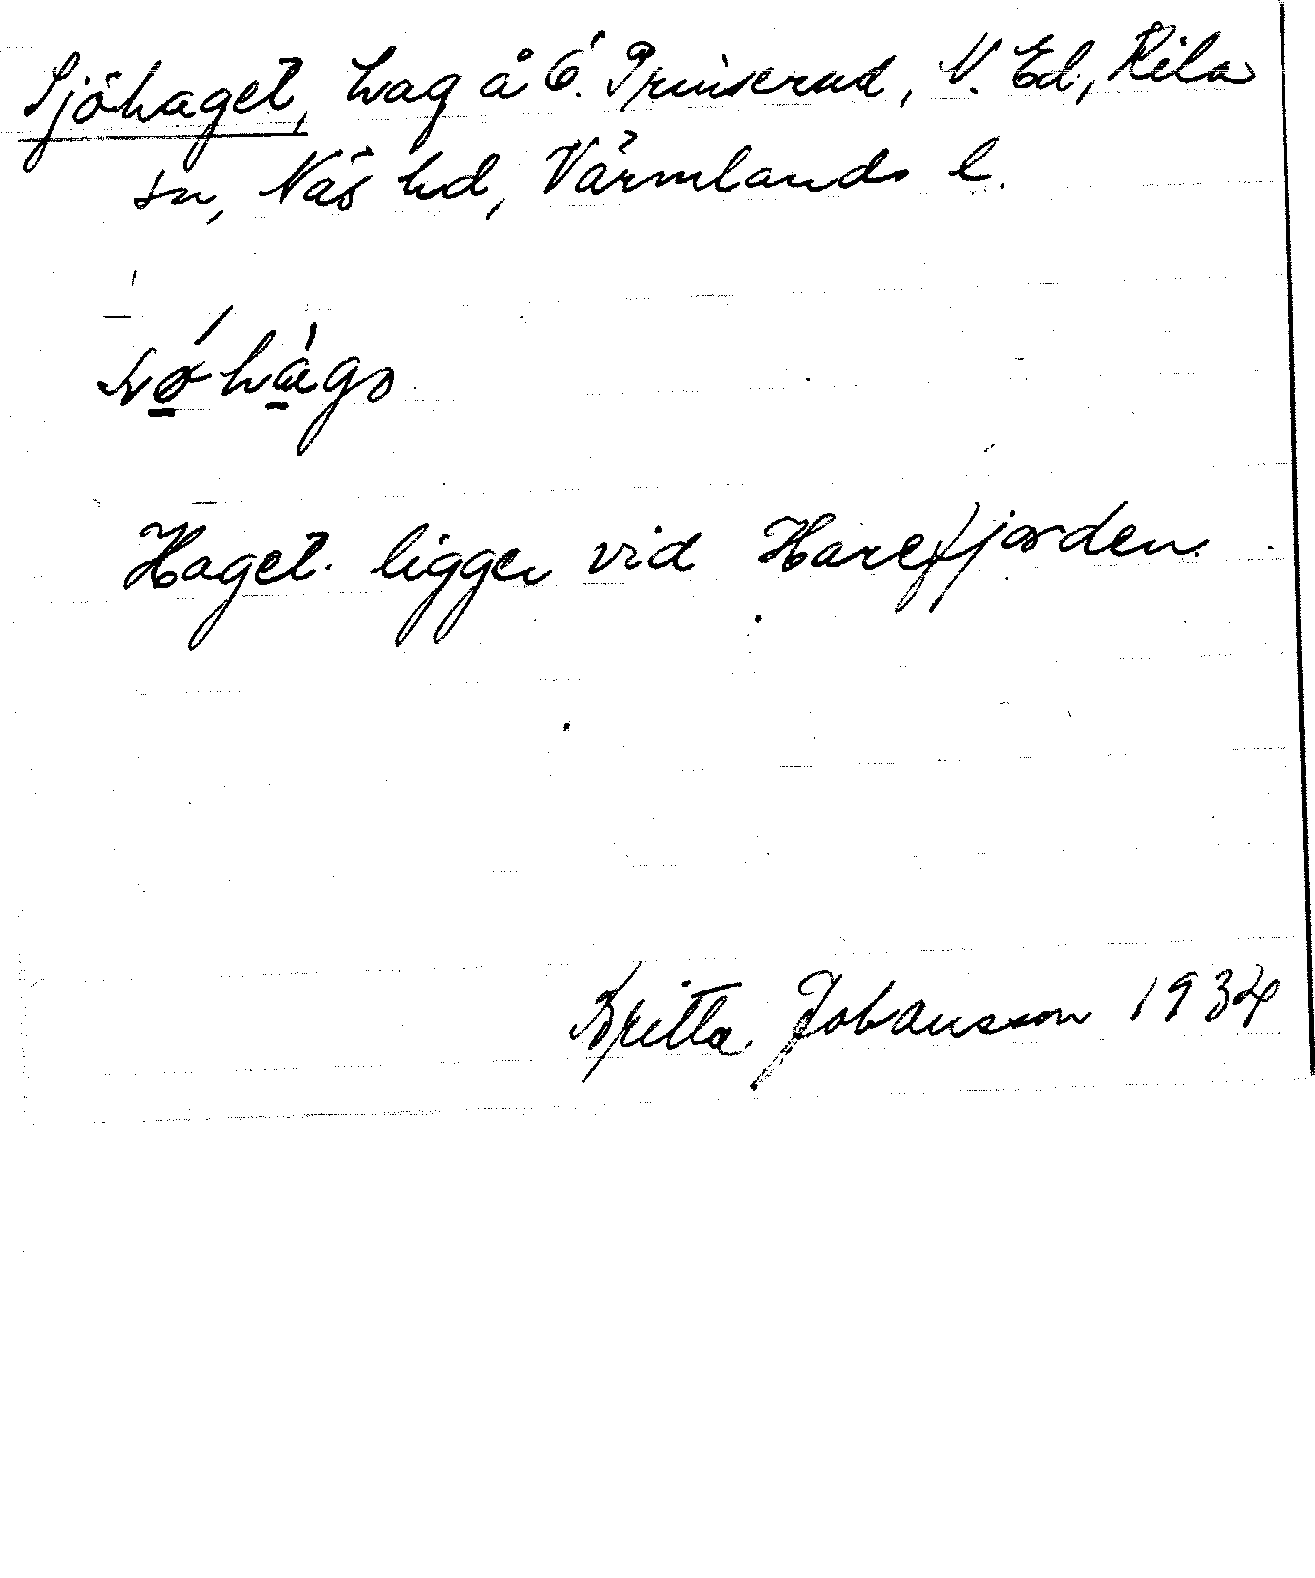 Sjöhaget, hag å Ö. Prinserud, V. Ed, Kila
sn, Näs hd, Värmlands l.
Haget ligger vid Harefjorden.
Britta Johansson 1934